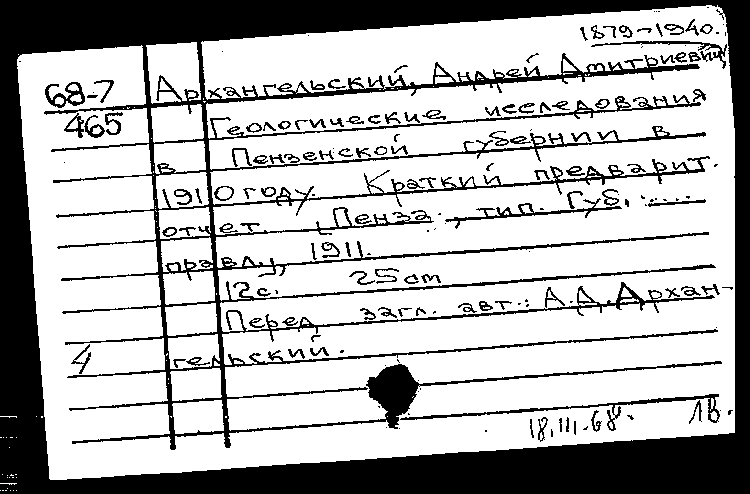 1879-1940.
68-7 Архангельский, Андрей Дмитриевич
465 Геологические исследования
в Пензенской губернии в
1910 году. Краткий предварит.
отчет. [Пенза, тип. Губ. ....
правл.], 1911.
12с. 25 см
Перед загл. авт.: А.Д.Архан-
4 гельский.
18.III.68.